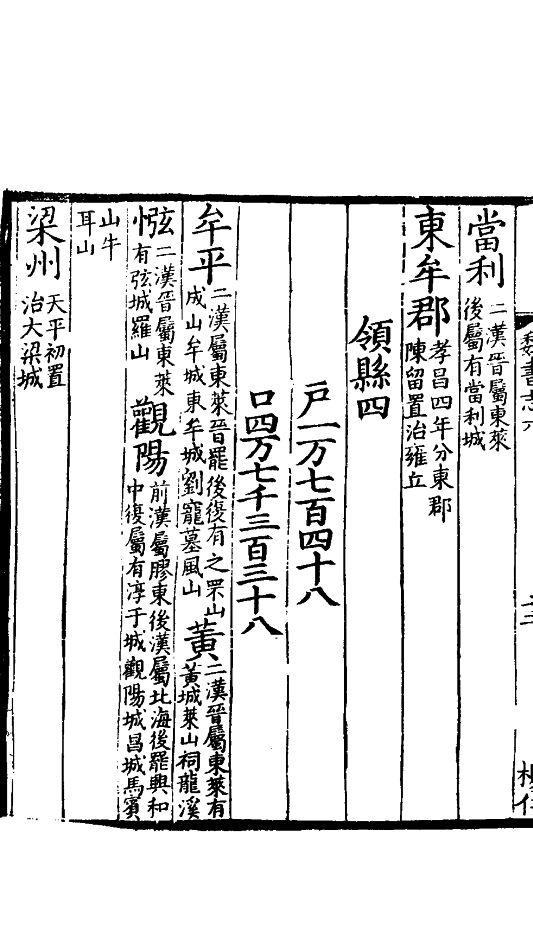 當利 二漢晉屬東萊
後屬有當利城
東牟郡 孝昌四年分東郡
陳留置治雍丘
領縣四
戶一万七百四十八
口四万七千三百三十八
牟平 二漢屬東萊晉罷後復有之罘山
成山牟城東牟城劉寵墓風山
黃 二漢晉屬東萊有
黃城萊山祠龍溪
惤 二漢晉屬東萊
有弦城羅山
觀陽 前漢屬膠東後漢屬北海後罷興和
中復屬有淳于城觀陽城昌城馬賓
山牛
耳山
梁州 天平初置
治大梁城